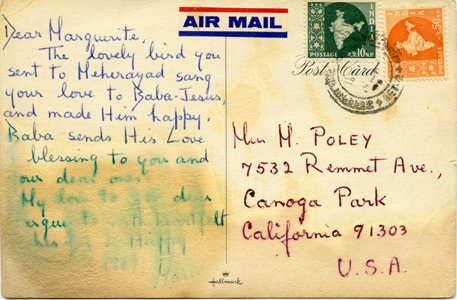 Dear Marguerite,
The lovely bird you
sent to Meherazad sang
your love to Baba-Jesus,
and made Him happy.
Baba sends His Love
blessing to you and
our dear ones.
My love to dear
heartfelt
Happy
Mani
AIR MAIL
INDIA
POSTAGE 10 NP
INDIA
50 NP
POSTAGE
Post Card
Miss M. POLEY
7532 Remmet Ave.,
Canoga Park
California 91303
U.S.A.
Hallmark